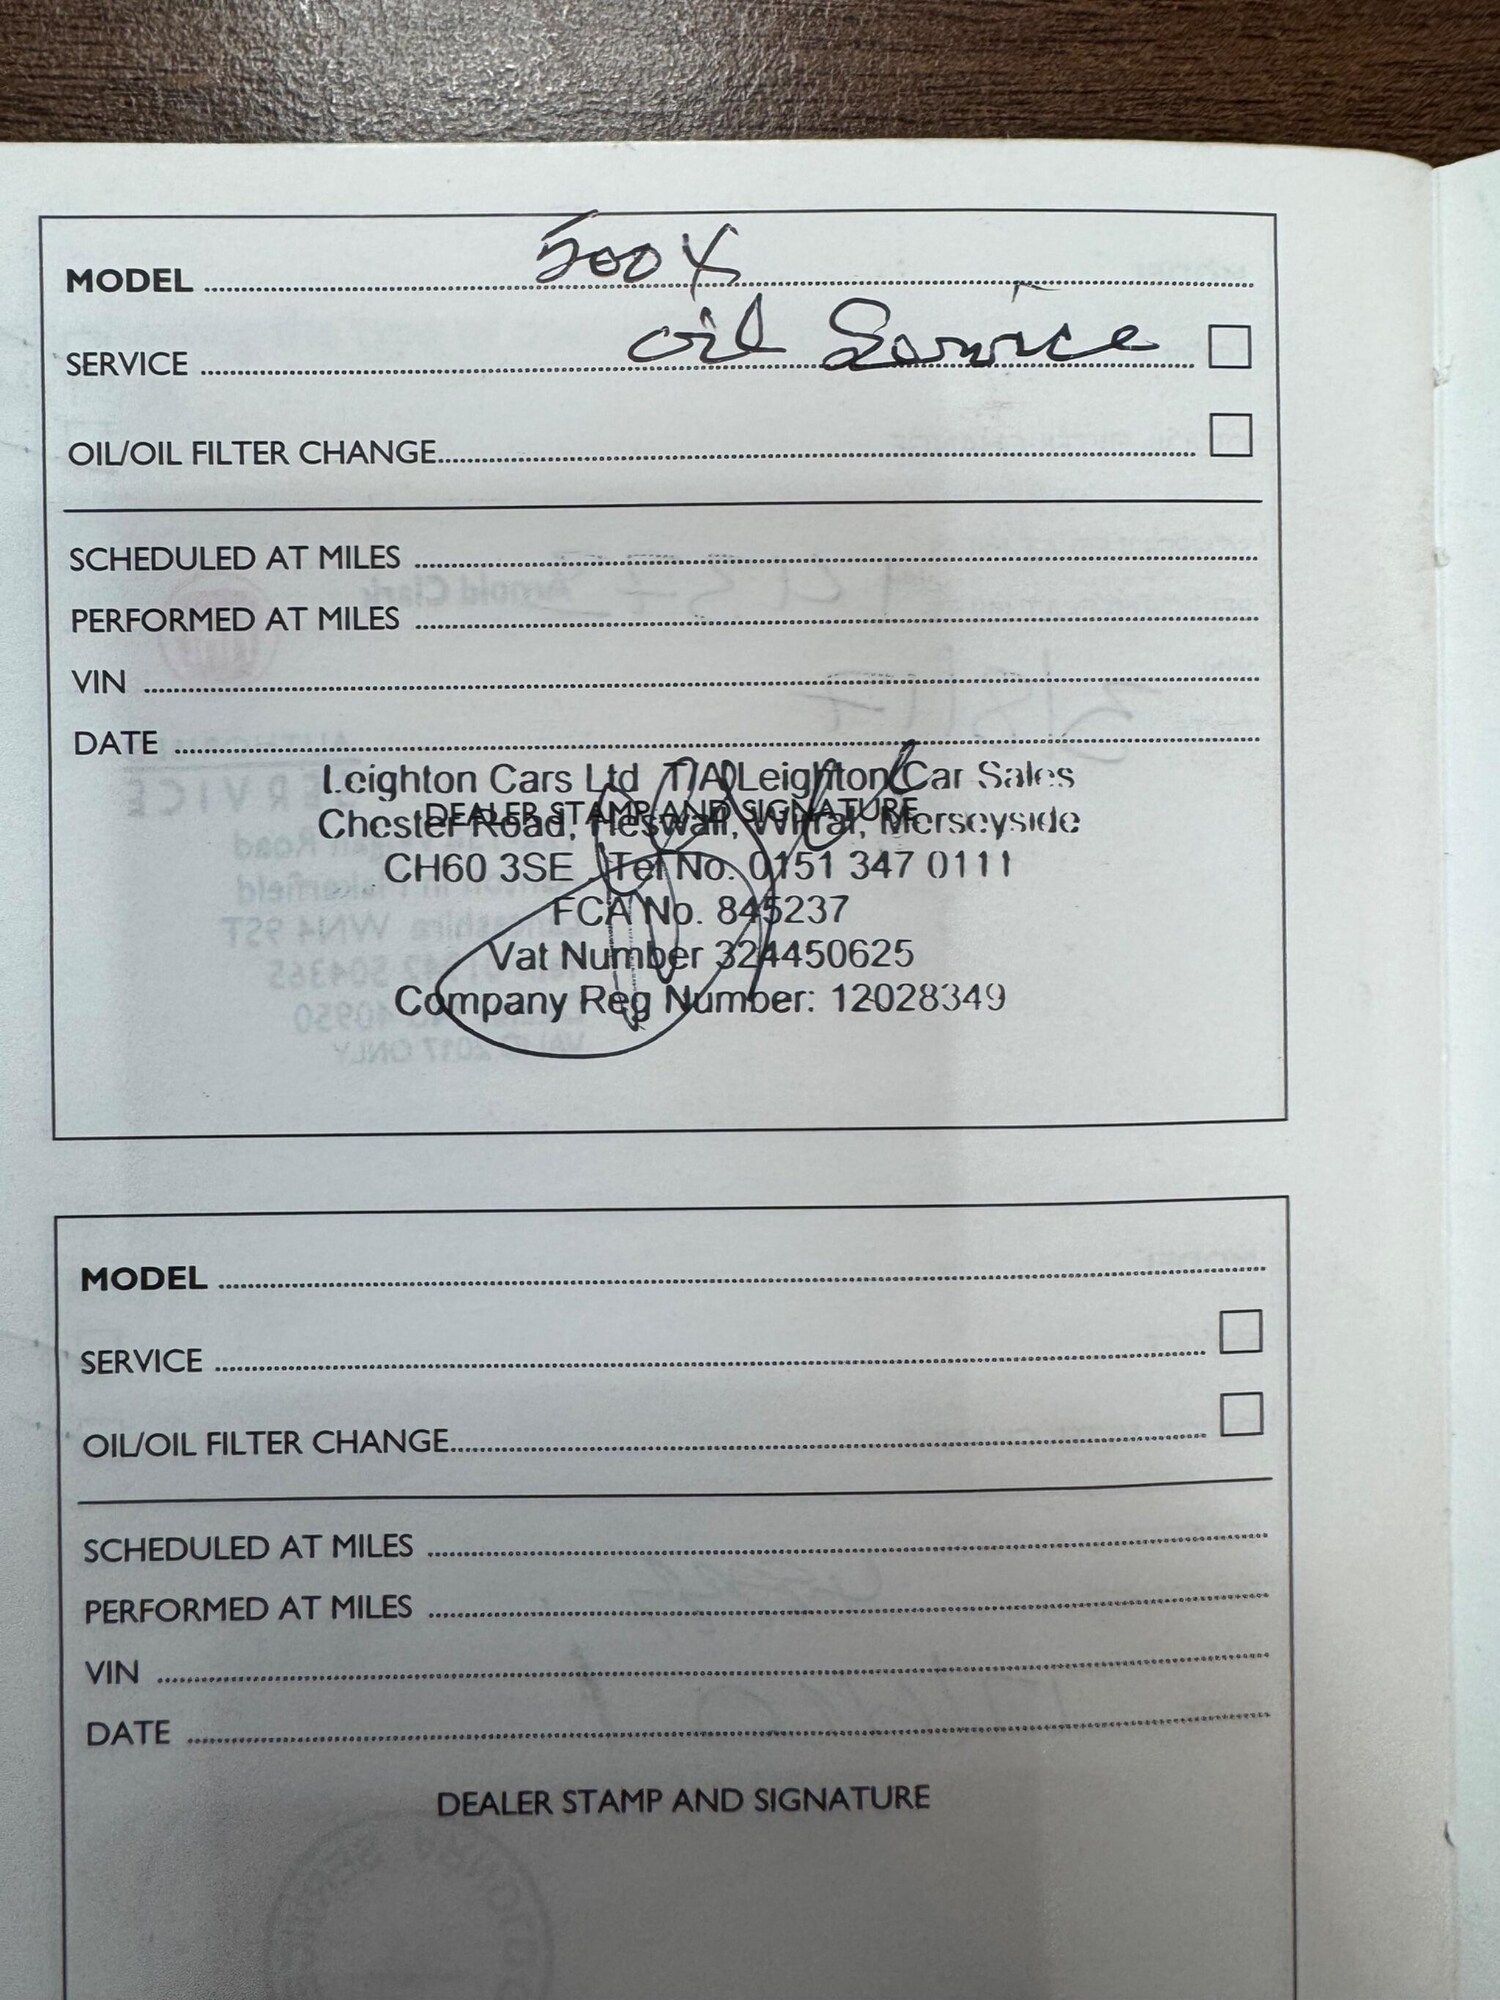 MODEL 500X
SERVICE oil Service
OIL/OIL FILTER CHANGE
SCHEDULED AT MILES
PERFORMED AT MILES
VIN
DATE
Leighton Cars Ltd T/A Leighton Car Sales
DEALER STAMP AND SIGNATURE
Chester Road, Heswall, Wirral, Merseyside
CH60 3SE Tel No. 0151 347 0111
FCA No. 845237
Vat Number 324450625
Company Reg Number: 12028349
MODEL
SERVICE
OIL/OIL FILTER CHANGE
SCHEDULED AT MILES
PERFORMED AT MILES
VIN
DATE
DEALER STAMP AND SIGNATURE